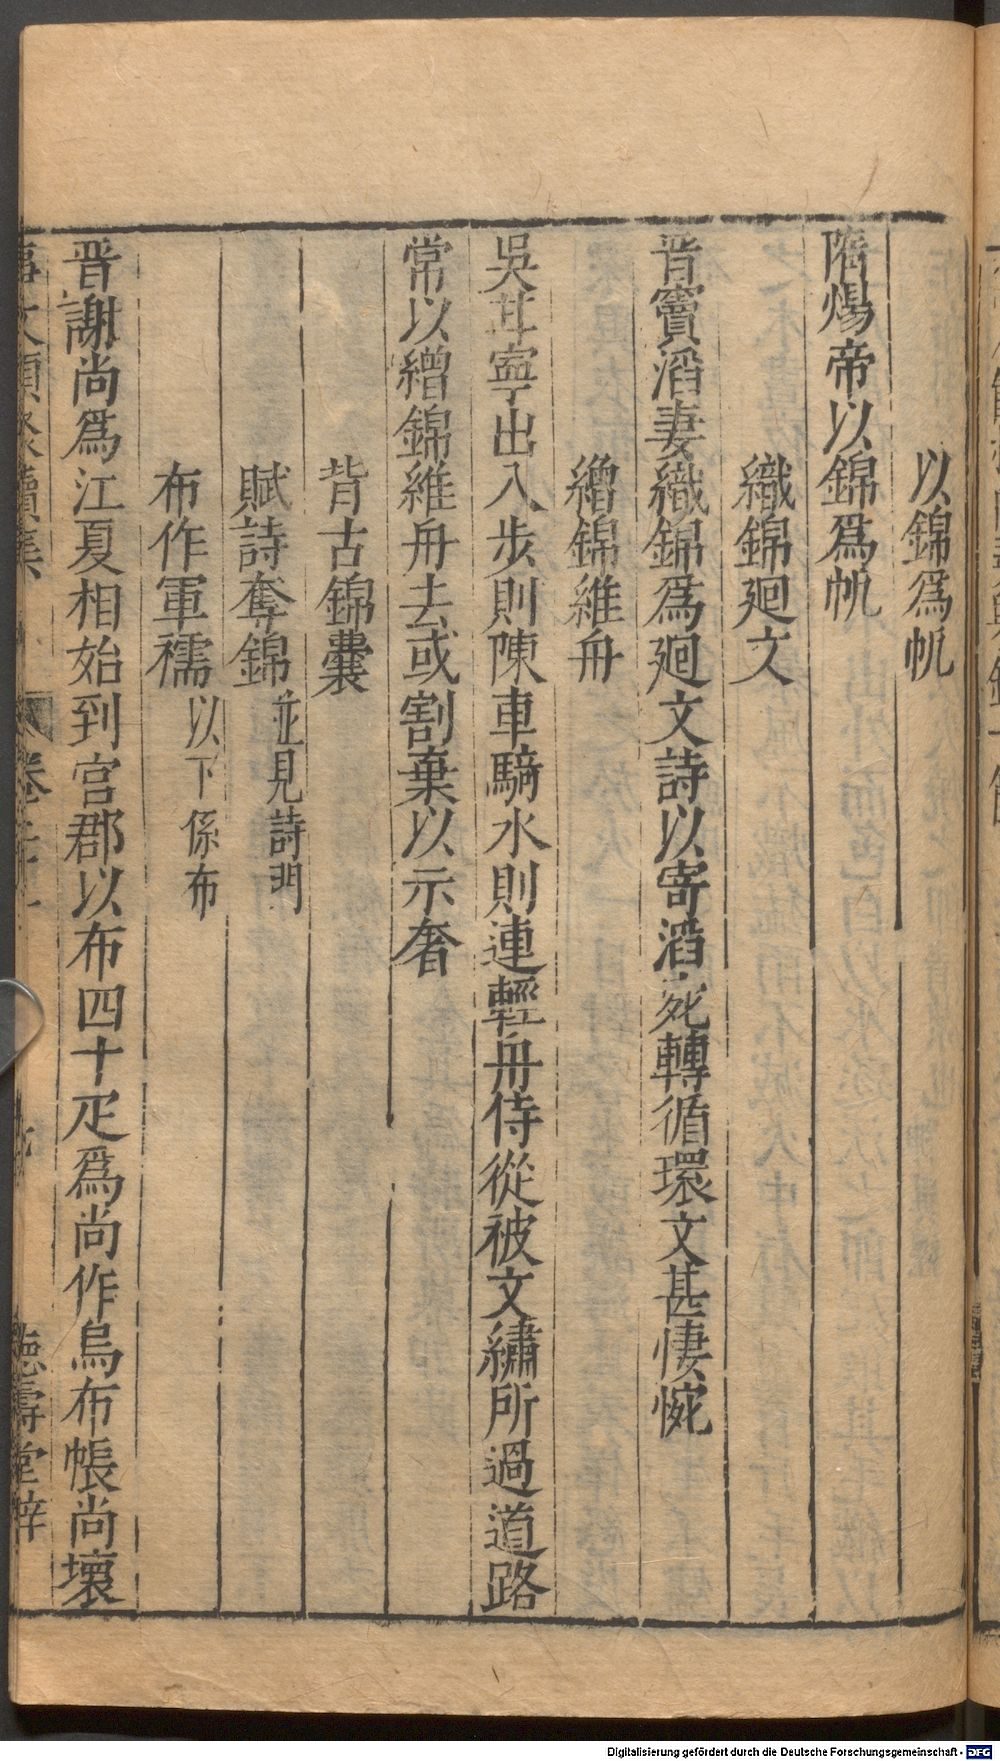 以錦爲帆
隋煬帝以錦爲帆
織錦廻文
晋竇滔妻織錦爲廻文詩以寄滔宛轉循環文甚悽惋
繒錦維舟
吳甘寧出入步則陳車騎水則連輕舟侍從被文繡所過道路
常以繒錦維舟去或割棄以示奢
背古錦囊
賦詩奪錦並見詩門
布作軍襦以下係布
晋謝尚爲江夏相始到官郡以布四十疋爲尚作烏布帳尚壞
事文類聚續集 卷 德壽堂梓
Digitalisierung gefördert durch die Deutsche Forschungsgemeinschaft - DFG